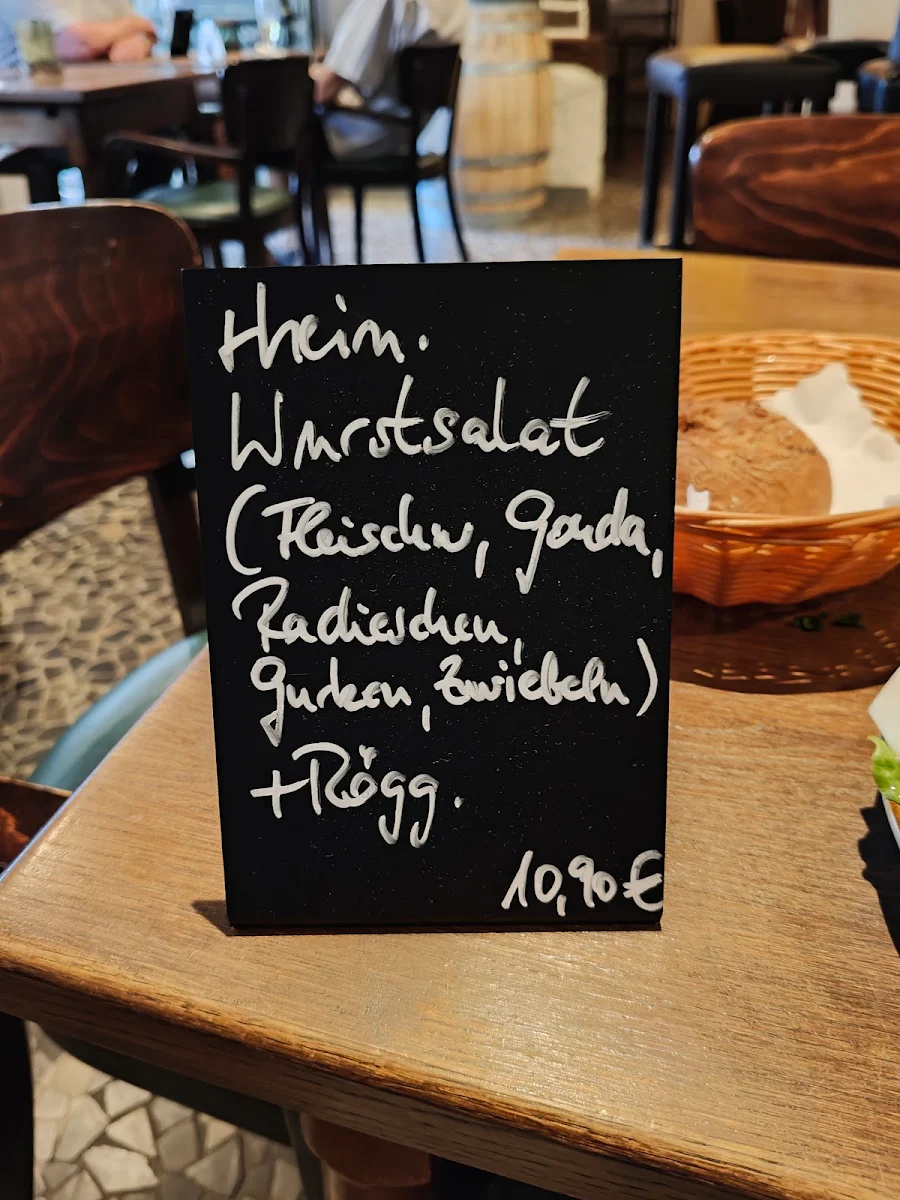 Rhein.
Wurstsalat
(Fleischw, Gouda,
Radieschen,
Gurken, Zwiebeln)
+Rögg.
10,90 €